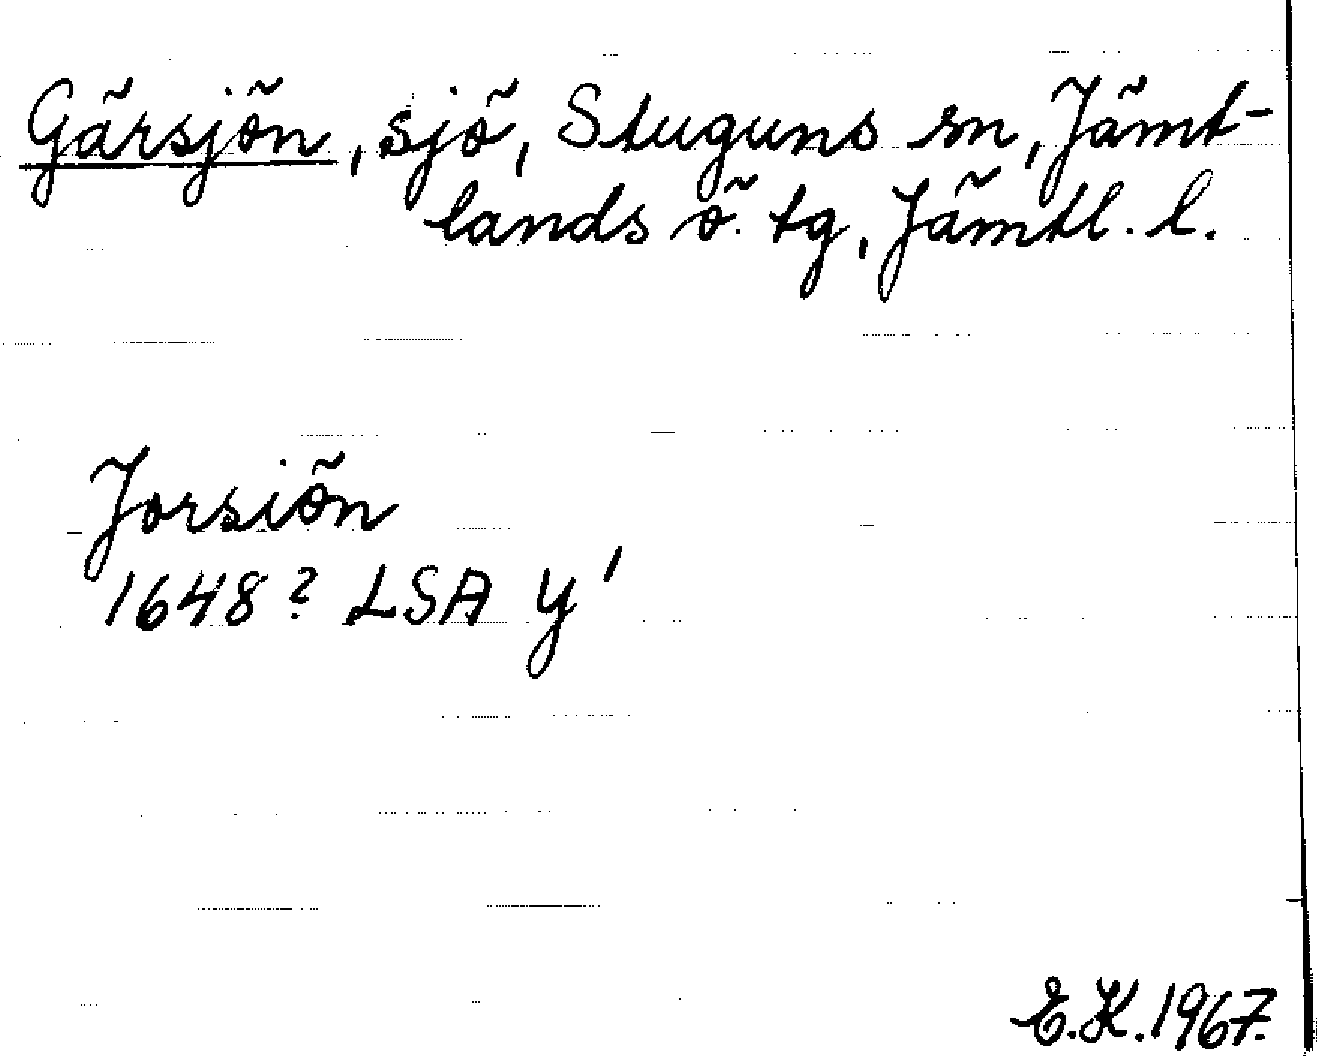 Gärsjön, sjö, Stuguns sn, Jämt-
lands ö. tg, Jämtl. l.
Jorsiön
1648? LSA Y'
E.K. 1967.